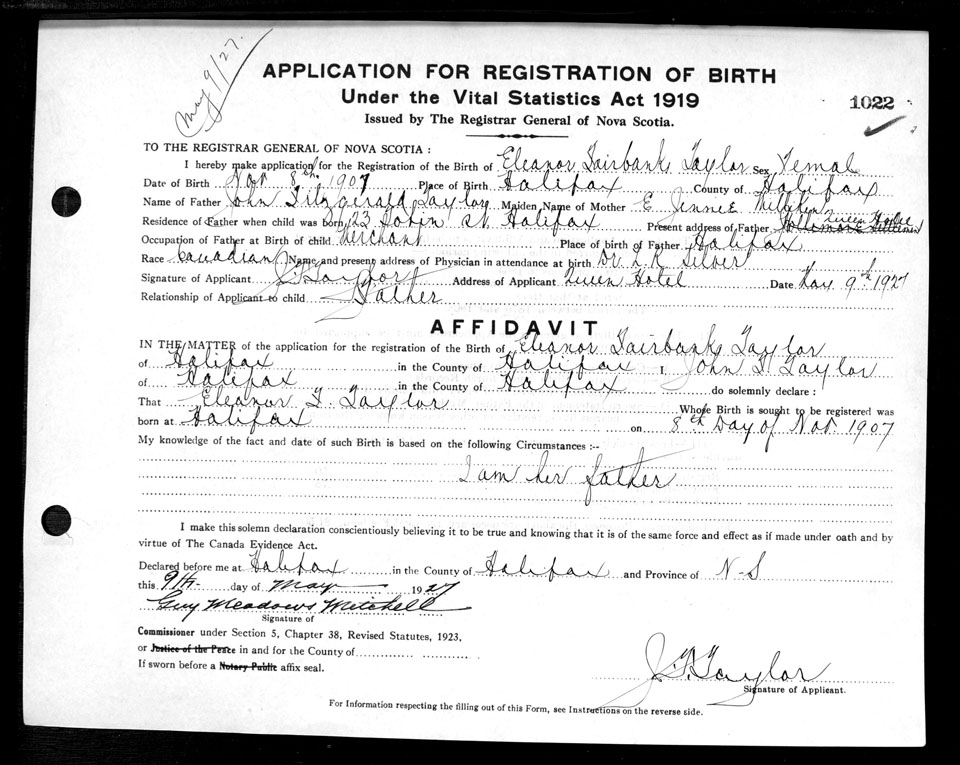 May 9/27.
APPLICATION FOR REGISTRATION OF BIRTH
Under the Vital Statistics Act 1919
1022
Issued by The Registrar General of Nova Scotia.
TO THE REGISTRAR GENERAL OF NOVA SCOTIA :
I hereby make application for the Registration of the Birth of Eleanor Fairbanks Taylor Sex Femal
Date of Birth Nov 8th 1907 Place of Birth Halifax County of Halifax
Name of Father John Fitzgerald Taylor Maiden Name of Mother E Jennie
Residence of Father when child was born 123 Tobin St Halifax Present address of Father Queen Hotel
Occupation of Father at Birth of child Merchant Place of birth of Father Halifax
Race Canadian Name and present address of Physician in attendance at birth Dr L R Silver
Signature of Applicant J F Taylor Address of Applicant Queen Hotel Date May 9th 1927
Relationship of Applicant to child Father
AFFIDAVIT
IN THE MATTER of the application for the registration of the Birth of Eleanor Fairbanks Taylor
of Halifax in the County of Halifax I, John F. Taylor
of Halifax in the County of Halifax do solemnly declare :
That Eleanor F. Taylor Whose Birth is sought to be registered was
born at Halifax on 8th Day of Nov. 1907
My knowledge of the fact and date of such Birth is based on the following Circumstances :--
I am her father
I make this solemn declaration conscientiously believing it to be true and knowing that it is of the same force and effect as if made under oath and by
virtue of The Canada Evidence Act.
Declared before me at Halifax in the County of Halifax and Province of N-S
this 9th- day of May 1927
Guy Meadows Mitchell
Signature of
Commissioner under Section 5, Chapter 38, Revised Statutes, 1923,
or Justice of the Peace in and for the County of
If sworn before a Notary Public affix seal.
J. F. Taylor
Signature of Applicant.
For Information respecting the filling out of this Form, see Instructions on the reverse side.